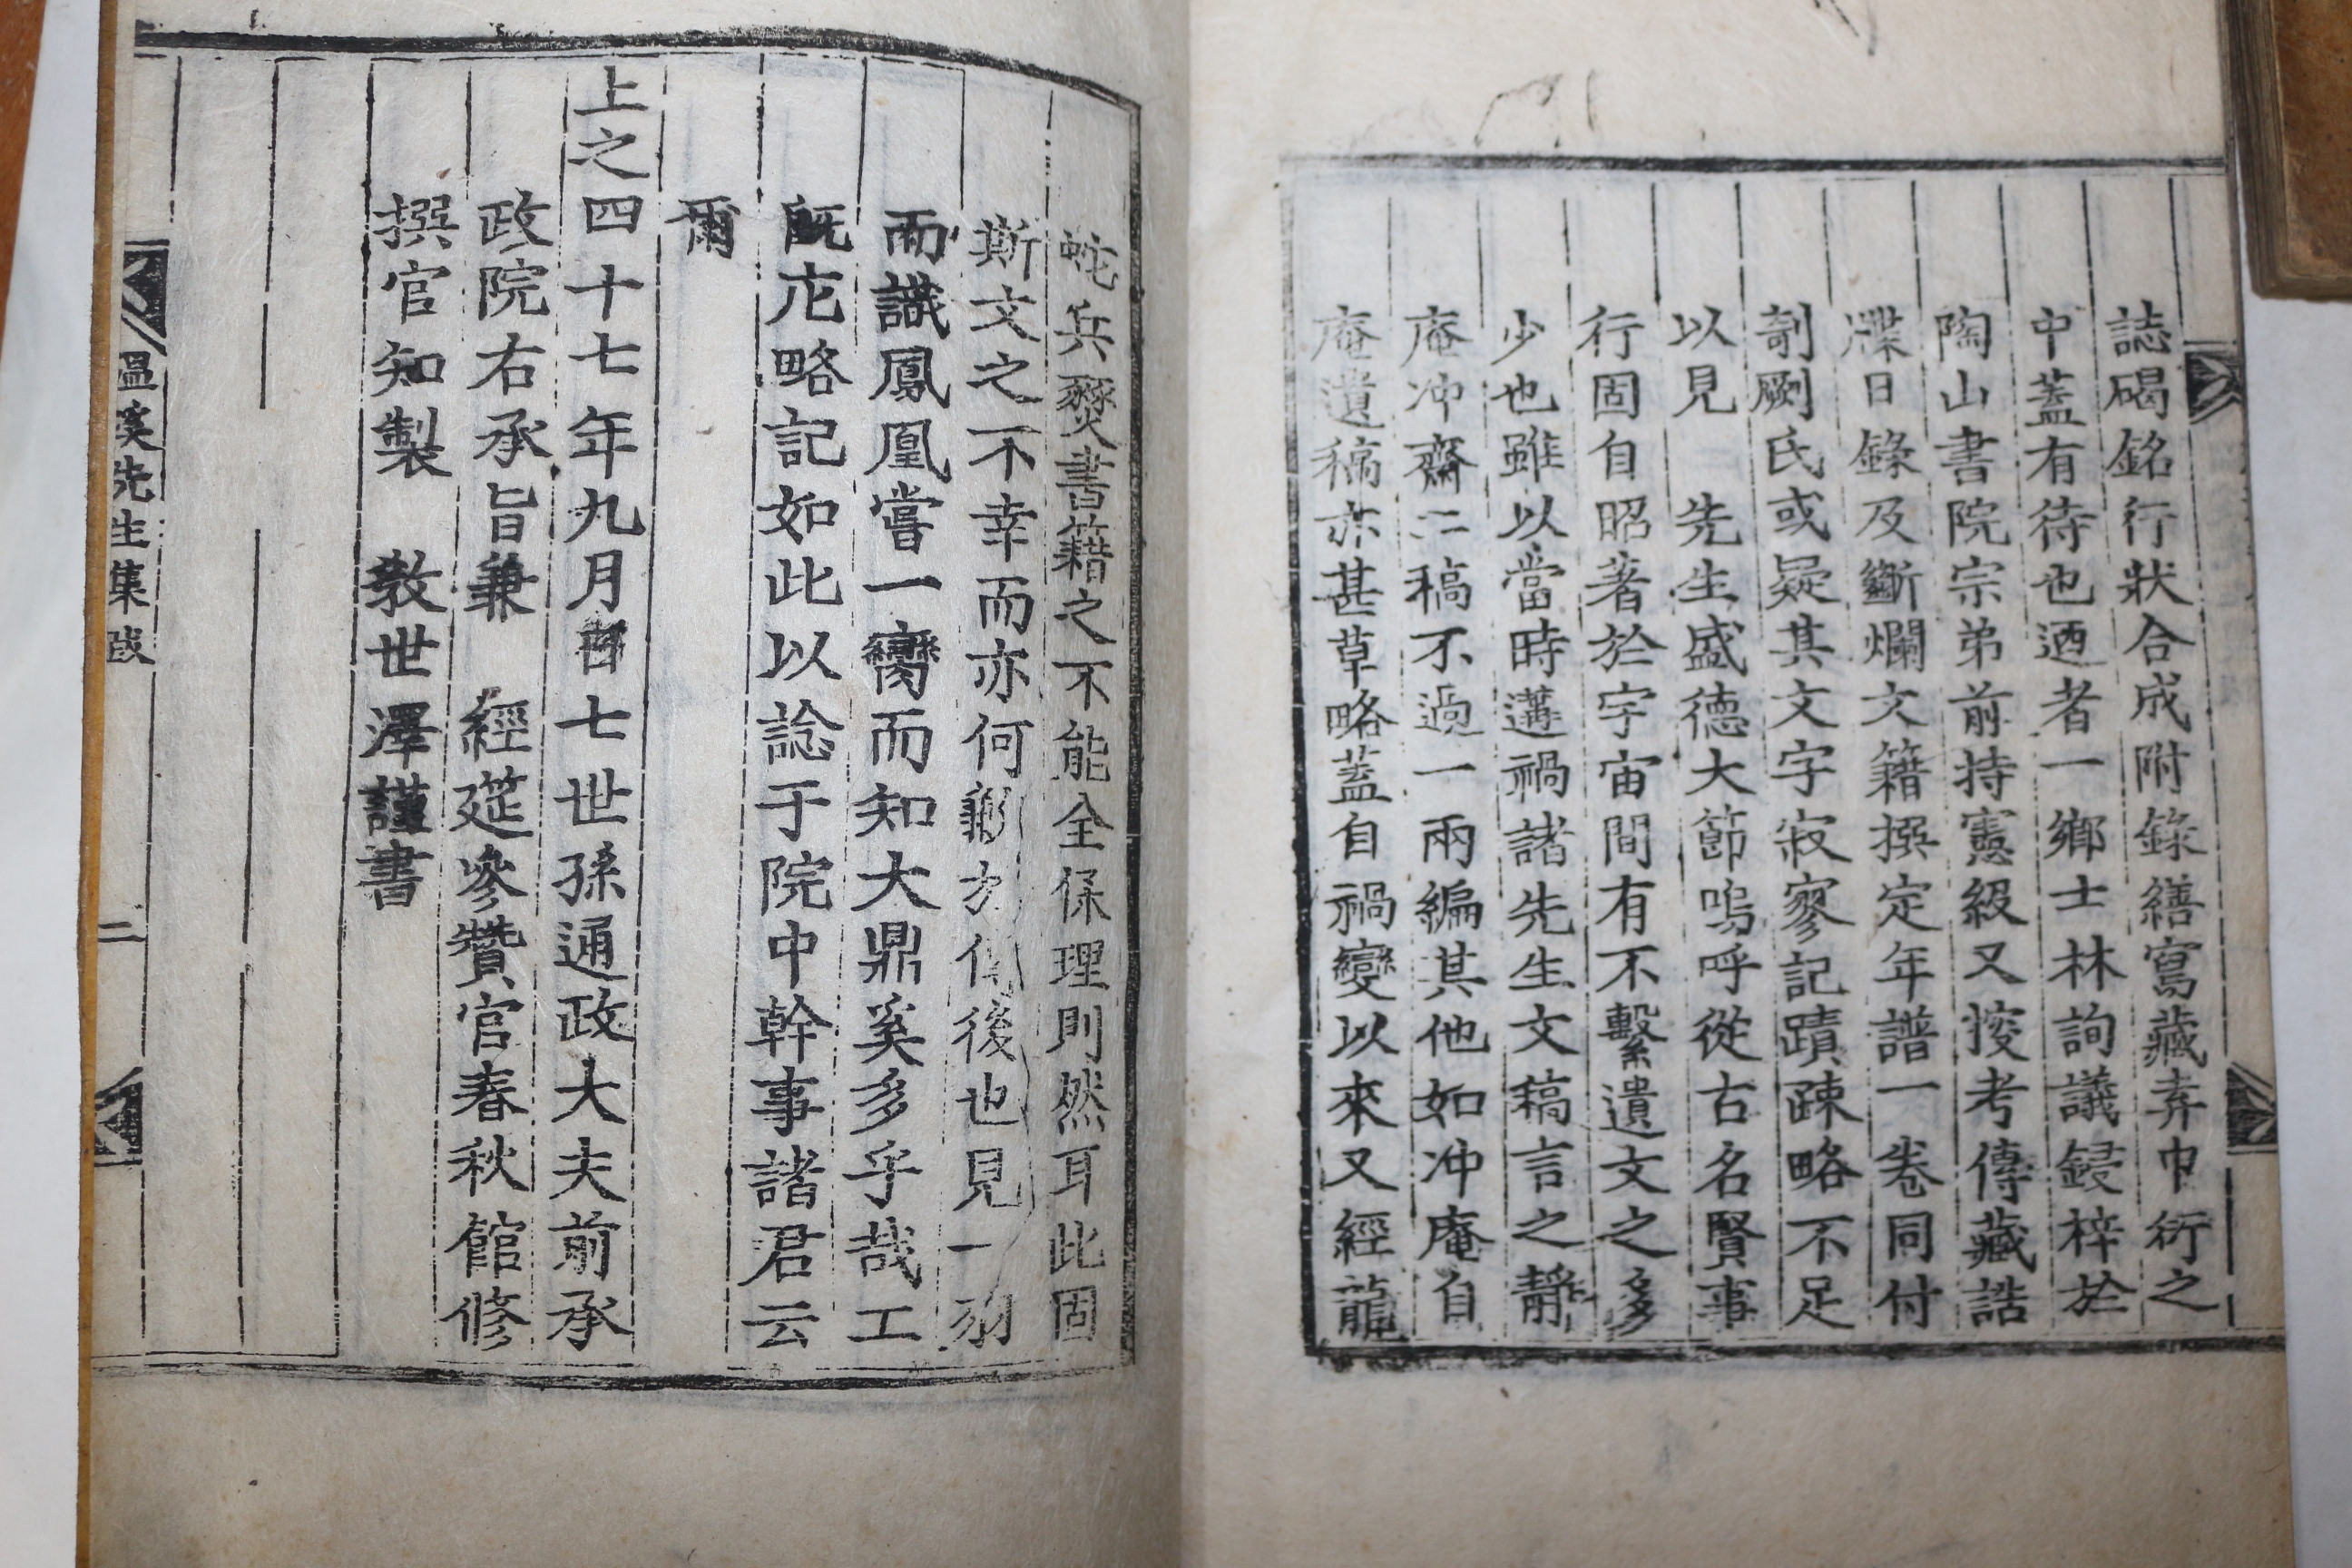 誌碣銘行狀合成附錄繕寫藏弆巾衍之
中蓋有待也迺者一鄉士林詢議鋟梓於
陶山書院宗弟前持憲級又按考傳藏誥
牒日錄及斷爛文籍撰定年譜一卷同付
剞劂氏或疑其文字寂寥記蹟踈略不足
以見 先生盛德大節嗚呼從古名賢事
行固自昭著於宇宙間有不繫遺文之多
少也雖以當時遘禍諸先生文稿言之靜
庵冲齋二稿不過一兩編其他如冲庵自
庵遺稿亦甚草略蓋自禍變以來又經龍
蛇兵燹書籍之不能全保理則然耳此固
斯文之不幸而亦何虧於後也見一羽
而識鳳凰嘗一臠而知大鼎奚多乎哉工
旣庀略記如此以諗于院中幹事諸君云
爾
上之四十七年九月日七世孫通政大夫前承
政院右承旨兼 經筵參贊官春秋館修
撰官知製 敎世澤謹書
溫溪先生集跋
二